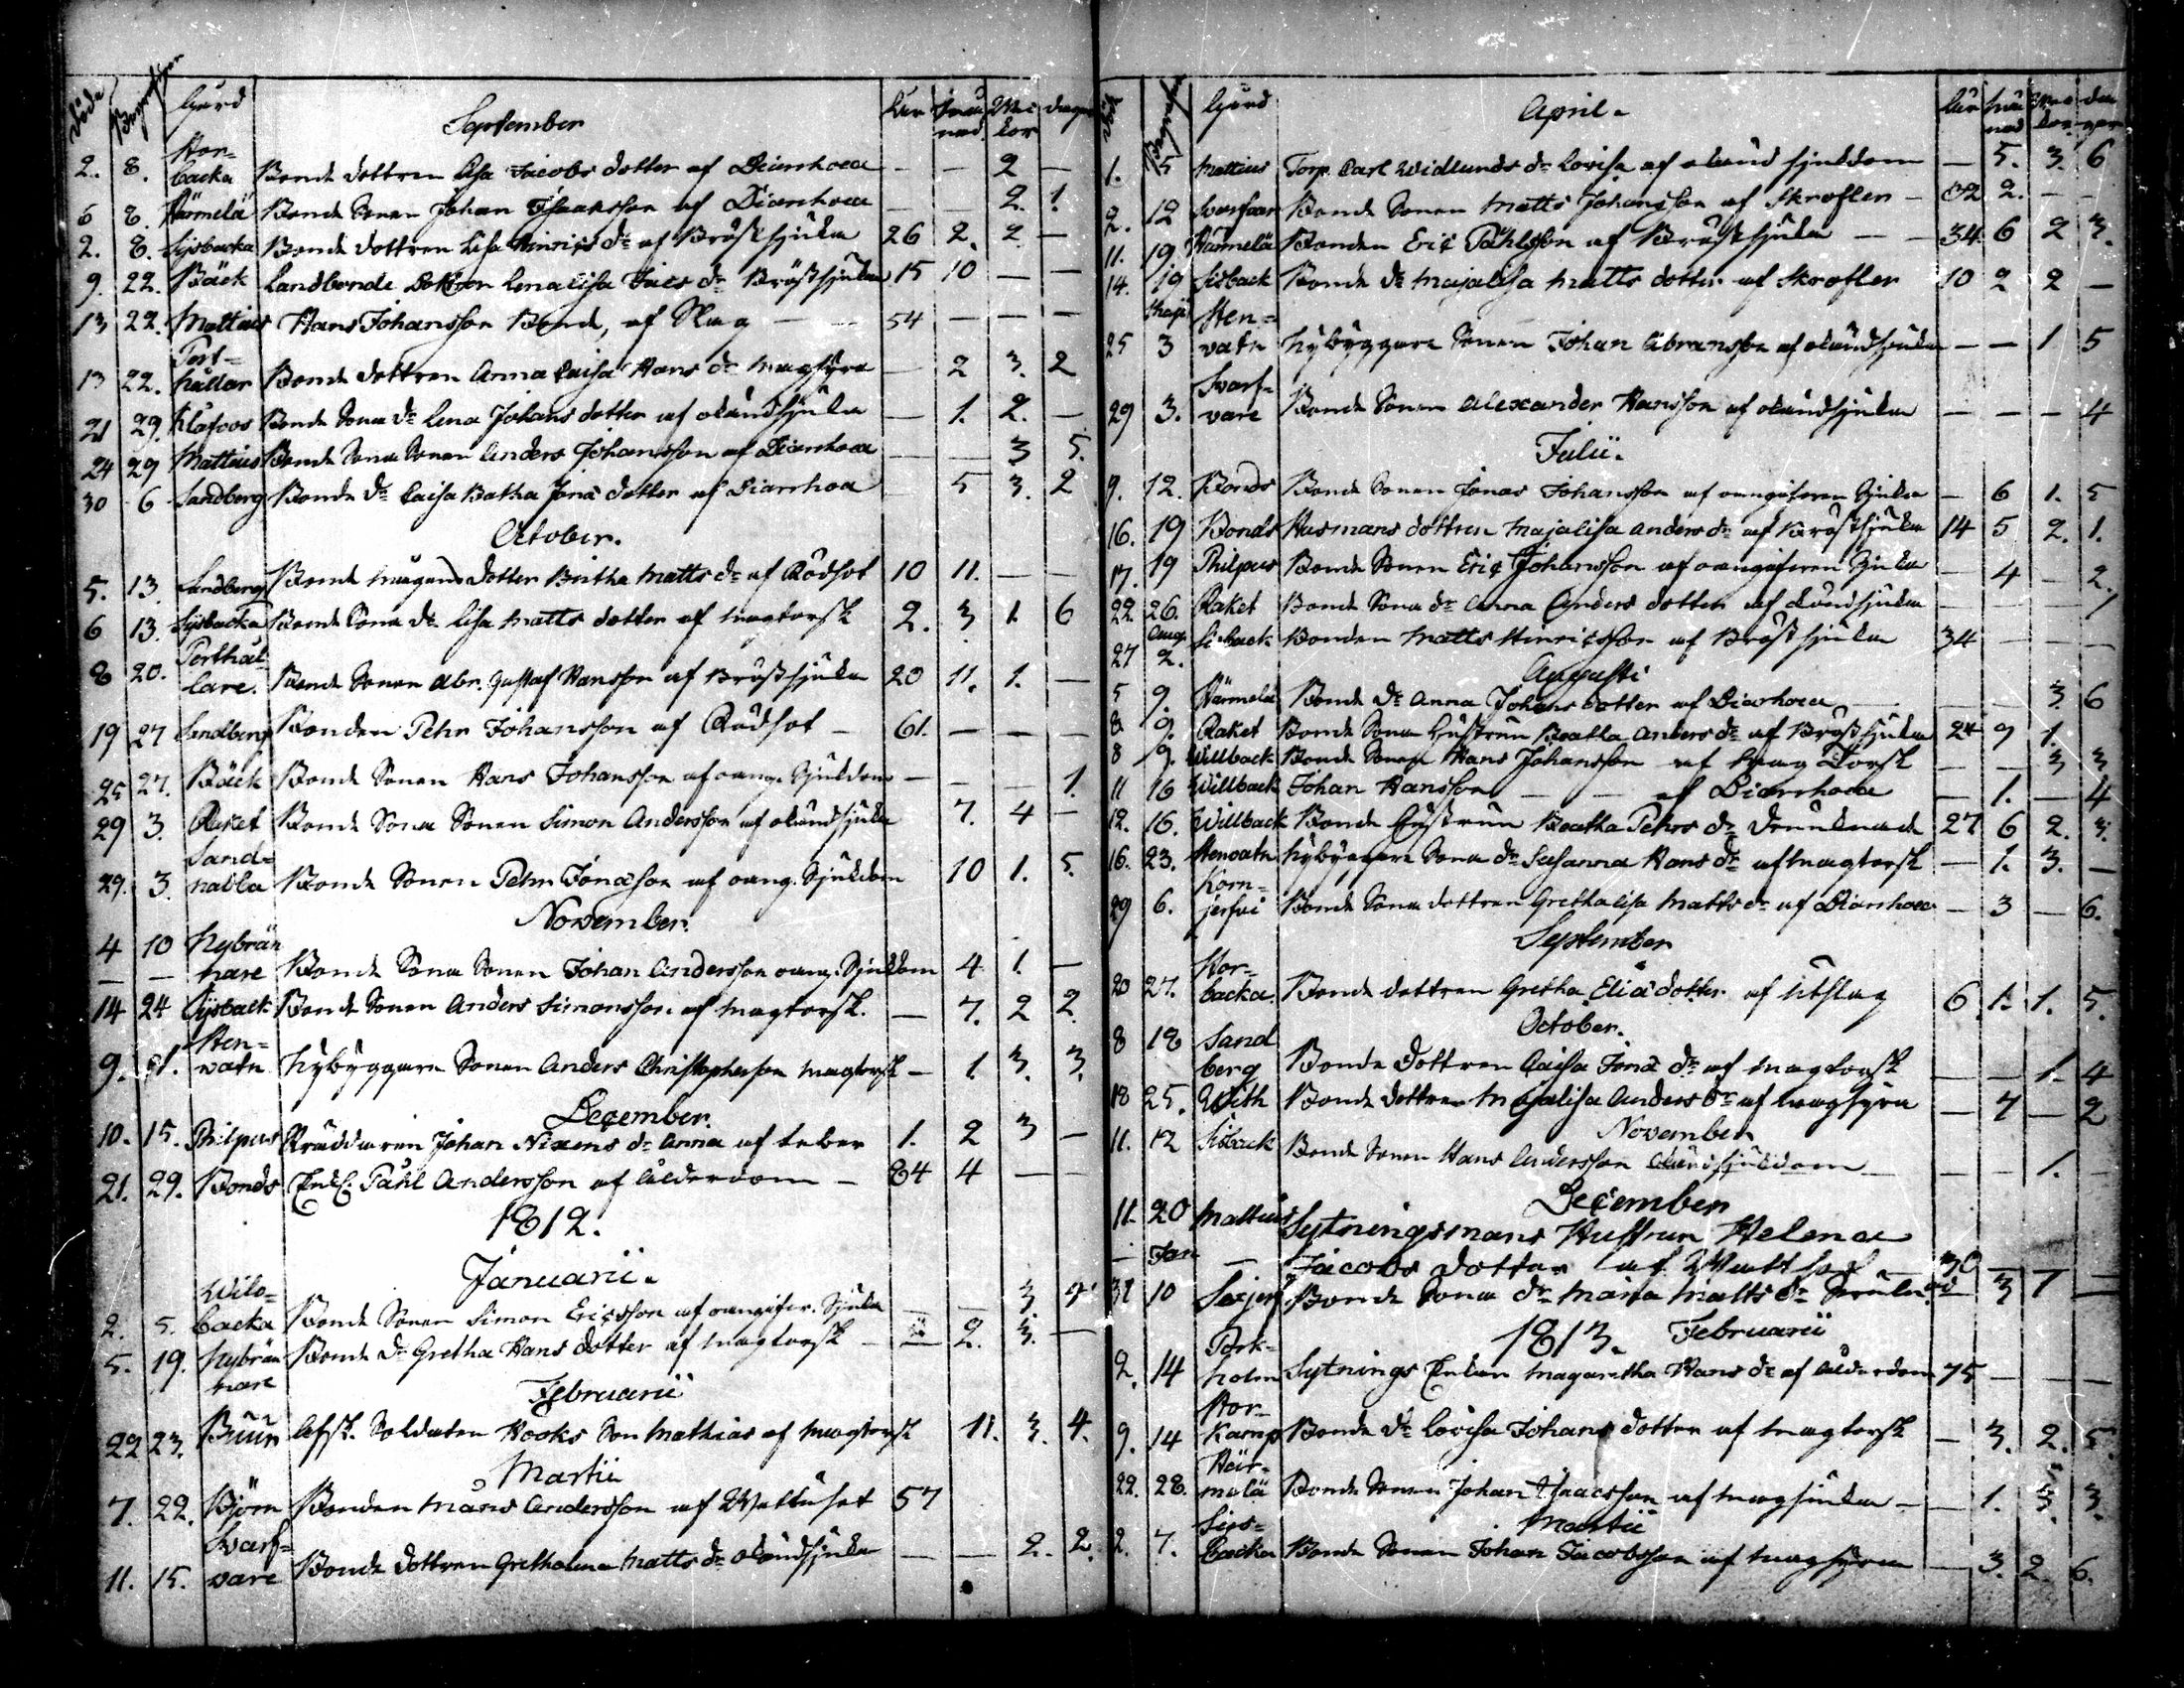 Döde Begrafne Gård September åhr måna der. Wec kor dagar
Hor-
2. 8. backa Bonde dottren Lisa Jacobs dotter af Diarrhoea — — 2 —
6 8. Härmelä Bonde Sonen Johan Isaacsson af Diarrhoea — — 2. 1.
2. 8. Sijsbacka Bonde dottren Lisa Hinrics dr af Bröstsjuka 26 2. 2 —
9. 22. Bäck Landbonde Dottren Lena Lisa Jacs dr Bröstsjukan 15 10 — —
13 22. Mattius Hans Johansson Bond, af Slag — 54 — — —
Port-
13 22. hållar Bonde dottren Anna Caisa Hans dr magsyra — 2 3. 2
21 29. Klåfvos Bonde Sona dr Lena Johans dotter af okändsjuka — 1. 2. —
24 29 Mattius Bonde Sona Sonen Anders Johansson af Diarrhoea — — 3 5.
30 6 Sandberg Bonde dr Caisa Batha Jona dotter af Diarrhoea 5 3. 2
October.
5. 13. Sandberg Bonde mågens dotter Britha Matts dr af Rödsot 10 11. — —
6 13. Sijsbacka Bonde Sona dr. Lisa Matts dotter af magtorsk 2. 3 1. 6
Porthål-
8 20. lare. Bonde Sonen Abr. Gustaf Hansson af Bröstsjuka 20 11. 1. —
19 27 Sandberg Bonden Pehr Johansson af Rödsot — 61. — — —
25 27. Bäck Bonde Sonen Hans Johansson af oang. Sjukdom — — — 1.
29 3. Raket Bonde Sona Sonen Simon Andersson af okändsjuka 7. 4 —
Sand-
29. 3. nabba Bonde Sonen Pehr Jonasson af oang. Sjukdom 10 1. 5.
November.
4 10 Nybrän
— — nare Bonde Sona Sonen Johan Andersson oang. Sjukdom 4 1. —
14 24 Sijsback Bonde Sonen Anders Simonsson af magtorsk. — 7. 2 2.
Sten-
9. 21. vatn Nybyggare Sonen Anders Christophersson magtorsk — 1. 3. 3.
December.
10. 15. Philpus Skräddaren Johan Nixens dr Anna af feber 1. 2 3 —
21. 29. Bonds Enkl. Påhl Andersson af Ålderdom — 84 4 — —
1812.
Januarii.
Wilo-
2. 5. backa Bonde Sonen Simon Ericsson af oangifven Sjuka — — 3. 2
5. 19. Nybrän Bonde dr Gretha Hans dotter af magtorsk — — 2. 3. —
nare
Februarii
22 23. Buur Afsk. Soldaten Hooks Son Mathias af magtorsk 11. 3. 4.
Martii
7. 22. Björn Bonden Måns Andersson af Wattusot 57
Svarf-
11. 15. vare Bonde dottren Grethalena Matts dr okändsjuka — — 2. 2.
Död Begrafne Gård April. åhr må nad Wec kor da gar
1. 5 Mattius Torp. Carl Widlunds dr Lovisa af okänd sjukdom — 5. 3. 6
2. 12 Svarfvar Bonde Sonen Matts Johansson af Skrofler — 32 2. — —
11. 19. Härmelä Bonden Eric Påhlsson af Bröstsjuka — 34 6 2 3.
14. 19 Sisback Bonde dr Majalisa Matts dotter af Skrofler 10 2 2 —
Maji Sten-
25 3 vatn Nybyggare Sonen Johan Abramsson af okändsjuka — — 1 5
Svarf-
29 3. vare Bonde Sonen Alexander Hansson af okändsjuka — — — 4
Julii.
9. 12. Bonds Bonde Sonen Jonas Johansson af oangifven Sjuka — 6 1. 5
16. 19 Bonds Husmans dottren Majalisa Anders dr af Bröstsjuka 14 5 2. 1.
17. 19 Philpus Bonde Sonen Eric Johansson af oangifven Sjuka — 4 — 2.
22. 26. Raket Bonde Sona dr Anna Anders dotter af okändsjuka — — — 1
Aug.
27 2. Sisback Bonden Matts Hinricsson af Bröstsjuka 34 — — —
Augusti
5 9. Härmelä Bonde dr Anna Johans dotter af Diarhoea — 3. 6
8 9. Raket Bonde Sona Hustrun Beatha Anders dr af Bröstsjuka 24 9 1.
8 9. Willback Bonde Sonen Hans Johansson af Mag Torsk — — 3 3
11 16 Willback Johan Hansson — — af Diarrhoea — 1. — 4
12. 16. Willback Bonde Hustrun Beatha Pehrs dr Drunknade 27 6 2. 3.
16. 23. Stenvatn Nybyggare Sona dr Susanna Hans dr af magtorsk — 1. 3. —
Korn-
29 6. jerfvi Bonde Sona dottren Grethalisa Matts dr af Diarrhoea — 3 — 6.
September
Hor-
20 27. backa. Bonde dottren Gretha Elia dotter af Utslag 6. 1. 1. 5.
October.
8 18 Sand
berg Bonde Dottren Caisa Jona dr af magtorsk — — 1. 4
18 25. With Bonde dottren Majalisa Anders dr af magsyra — 7 — 2
November
11. 12 Sisback Bonde Sonen Hans Andersson Okändsjukdom — — 1.
December
11. 20 Mattius Sytningsmans Hustrun Helena
— Jan — Jacobs dotter af Wattsot — 30 — — —
31 10 Bonde Sona dr Maria Matts dr 3 1 —
1813. Februarii
Pork-
2. 14 holm Sytnings Enkan Magaretha Hans dr af Ålderdom 75 — — —
Hor-
9. 14 Kamp Bonde dr Lovisa Johans dotter af magtorsk — 3. 2. 5.
Här-
22. 28. melä Bonde Sonen Johan Isaacsson af magsjuka — — 1. 3. 3.
Sijs- Martii
2. 7. backa Bonde Sonen Johan Jacobsson af magsyra — 3. 2. 6.